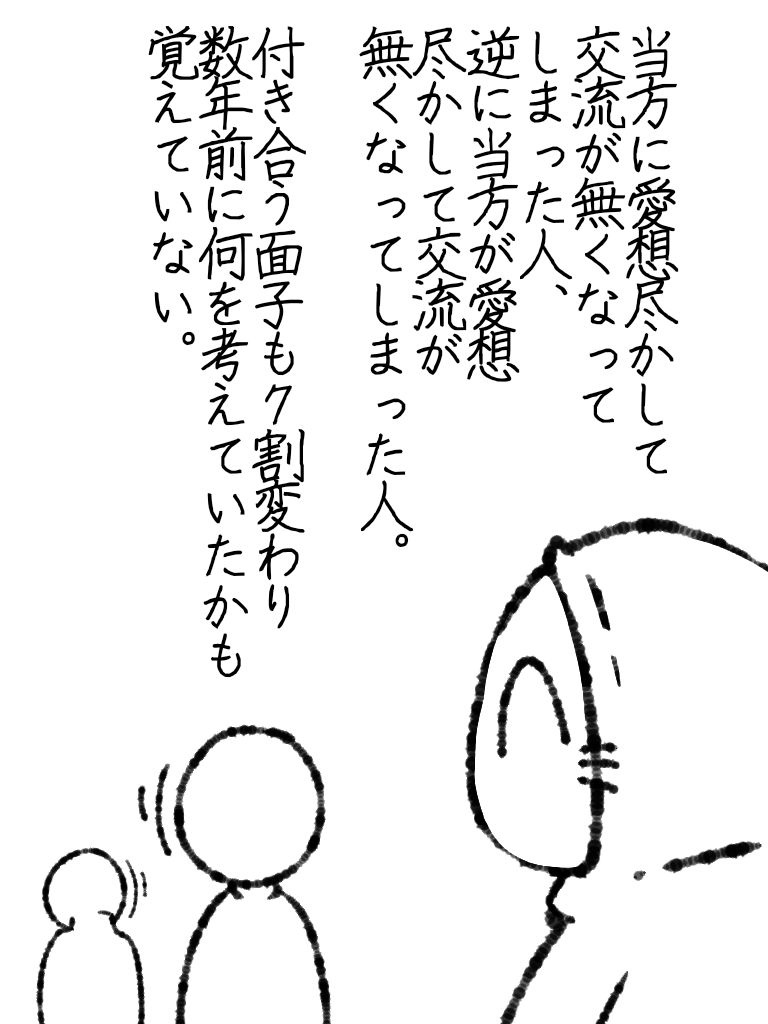 当方に愛想尽かして
交流が無くなって
しまった人、
逆に当方が愛想
尽かして交流が
無くなってしまった人。
付き合う面子もク割変わり
数年前に何を考えていたかも
覚えていない。